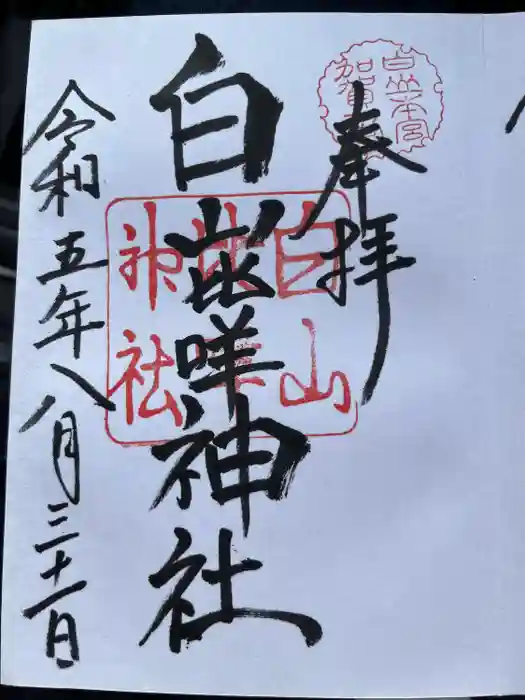 白山本宮
加賀
奉拝
白山比咩神社
白山
比咩
神社
令和五年八月三十一日